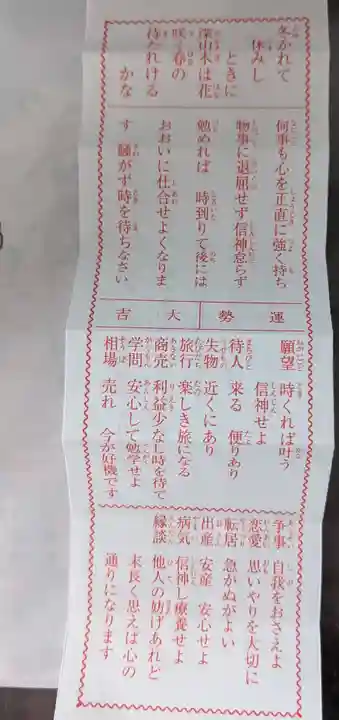 冬がれて
休みし
ときに
深山木は花
咲く春の
待たれける
かな
何事も心を正直に強く持ち
物事に退屈せず信神怠らず
勉めれば 時到りて後には
おおいに仕合せよくなりま
す 騒がず時を待ちなさい
運勢 大吉
願望 時くれば叶う
信神せよ
待人 来る 便りあり
失物 近くにあり
旅行 楽しき旅になる
商売 利益少なし時を待て
学問 安心して勉学せよ
相場 売れ 今が好機です
争事 自我をおさえよ
恋愛 思いやりを大切に
転居 急がぬがよい
出産 安産 安心せよ
病気 信神し療養せよ
縁談 他人の妨げあれど
末長く思えば心の
通りになります